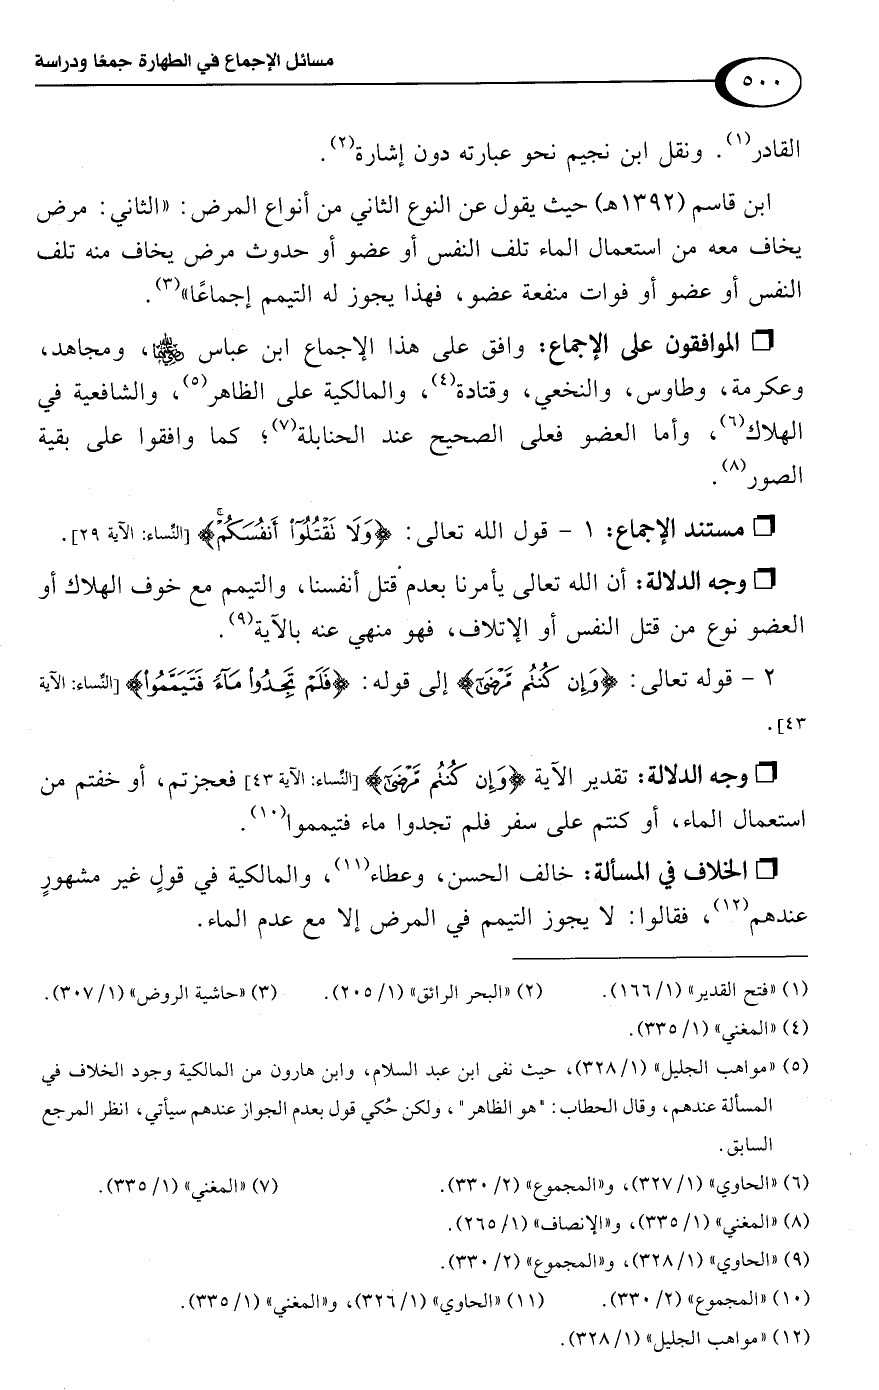 مسائل الإجماع في الطهارة جمعًا ودراسة
٥٠٠
القادر(١). ونقل ابن نجيم نحو عبارته دون إشارة(٢).
ابن قاسم (١٣٩٢هـ) حيث يقول عن النوع الثاني من أنواع المرض: «الثاني: مرض
يخاف معه من استعمال الماء تلف النفس أو عضو أو حدوث مرض يخاف منه تلف
النفس أو عضو أو فوات منفعة عضو، فهذا يجوز له التيمم إجماعًا»(٣).
❒ الموافقون على الإجماع: وافق على هذا الإجماع ابن عباس رضي الله عنهما، ومجاهد،
وعكرمة، وطاوس، والنخعي، وقتادة(٤)، والمالكية على الظاهر(٥)، والشافعية في
الهلاك(٦)، وأما العضو فعلى الصحيح عند الحنابلة(٧)؛ كما وافقوا على بقية
الصور(٨).
❒ مستند الإجماع: ١ - قول الله تعالى: ﴿وَلَا نَقْتُلُوٓا۟ أَنفُسَكُمْ ۚ﴾ [النِّساء: الآية ٢٩].
❒ وجه الدلالة: أن الله تعالى يأمرنا بعدم قتل أنفسنا، والتيمم مع خوف الهلاك أو
العضو نوع من قتل النفس أو الإتلاف، فهو منهي عنه بالآية(٩).
٢ - قوله تعالى: ﴿وَإِن كُنتُم مَّرْضَىٰٓ﴾ إلى قوله: ﴿فَلَمْ تَجِدُوا۟ مَآءً فَتَيَمَّمُوا۟﴾ [النِّساء: الآية
٤٣].
❒ وجه الدلالة: تقدير الآية ﴿وَإِن كُنتُم مَّرْضَىٰٓ﴾ [النِّساء: الآية ٤٣] فعجزتم، أو خفتم من
استعمال الماء، أو كنتم على سفر فلم تجدوا ماء فتيمموا(١٠).
❒ الخلاف في المسألة: خالف الحسن، وعطاء(١١)، والمالكية في قولٍ غير مشهورٍ
عندهم(١٢)، فقالوا: لا يجوز التيمم في المرض إلا مع عدم الماء.
(١) «فتح القدير» (١/ ١٦٦). (٢) «البحر الرائق» (١/ ٢٠٥). (٣) «حاشية الروض» (١/ ٣٠٧).
(٤) «المغني» (١/ ٣٣٥).
(٥) «مواهب الجليل» (١/ ٣٢٨)، حيث نفى ابن عبد السلام، وابن هارون من المالكية وجود الخلاف في
المسألة عندهم، وقال الحطاب: "هو الظاهر"، ولكن حُكي قول بعدم الجواز عندهم سيأتي، انظر المرجع
السابق.
(٦) «الحاوي» (١/ ٣٢٧)، و«المجموع» (٢/ ٣٣٠). (٧) «المغني» (١/ ٣٣٥).
(٨) «المغني» (١/ ٣٣٥)، و«الإنصاف» (١/ ٢٦٥).
(٩) «الحاوي» (١/ ٣٢٨)، و«المجموع» (٢/ ٣٣٠).
(١٠) «المجموع» (٢/ ٣٣٠). (١١) «الحاوي» (١/ ٣٢٦)، و«المغني» (١/ ٣٣٥).
(١٢) «مواهب الجليل» (١/ ٣٢٨).